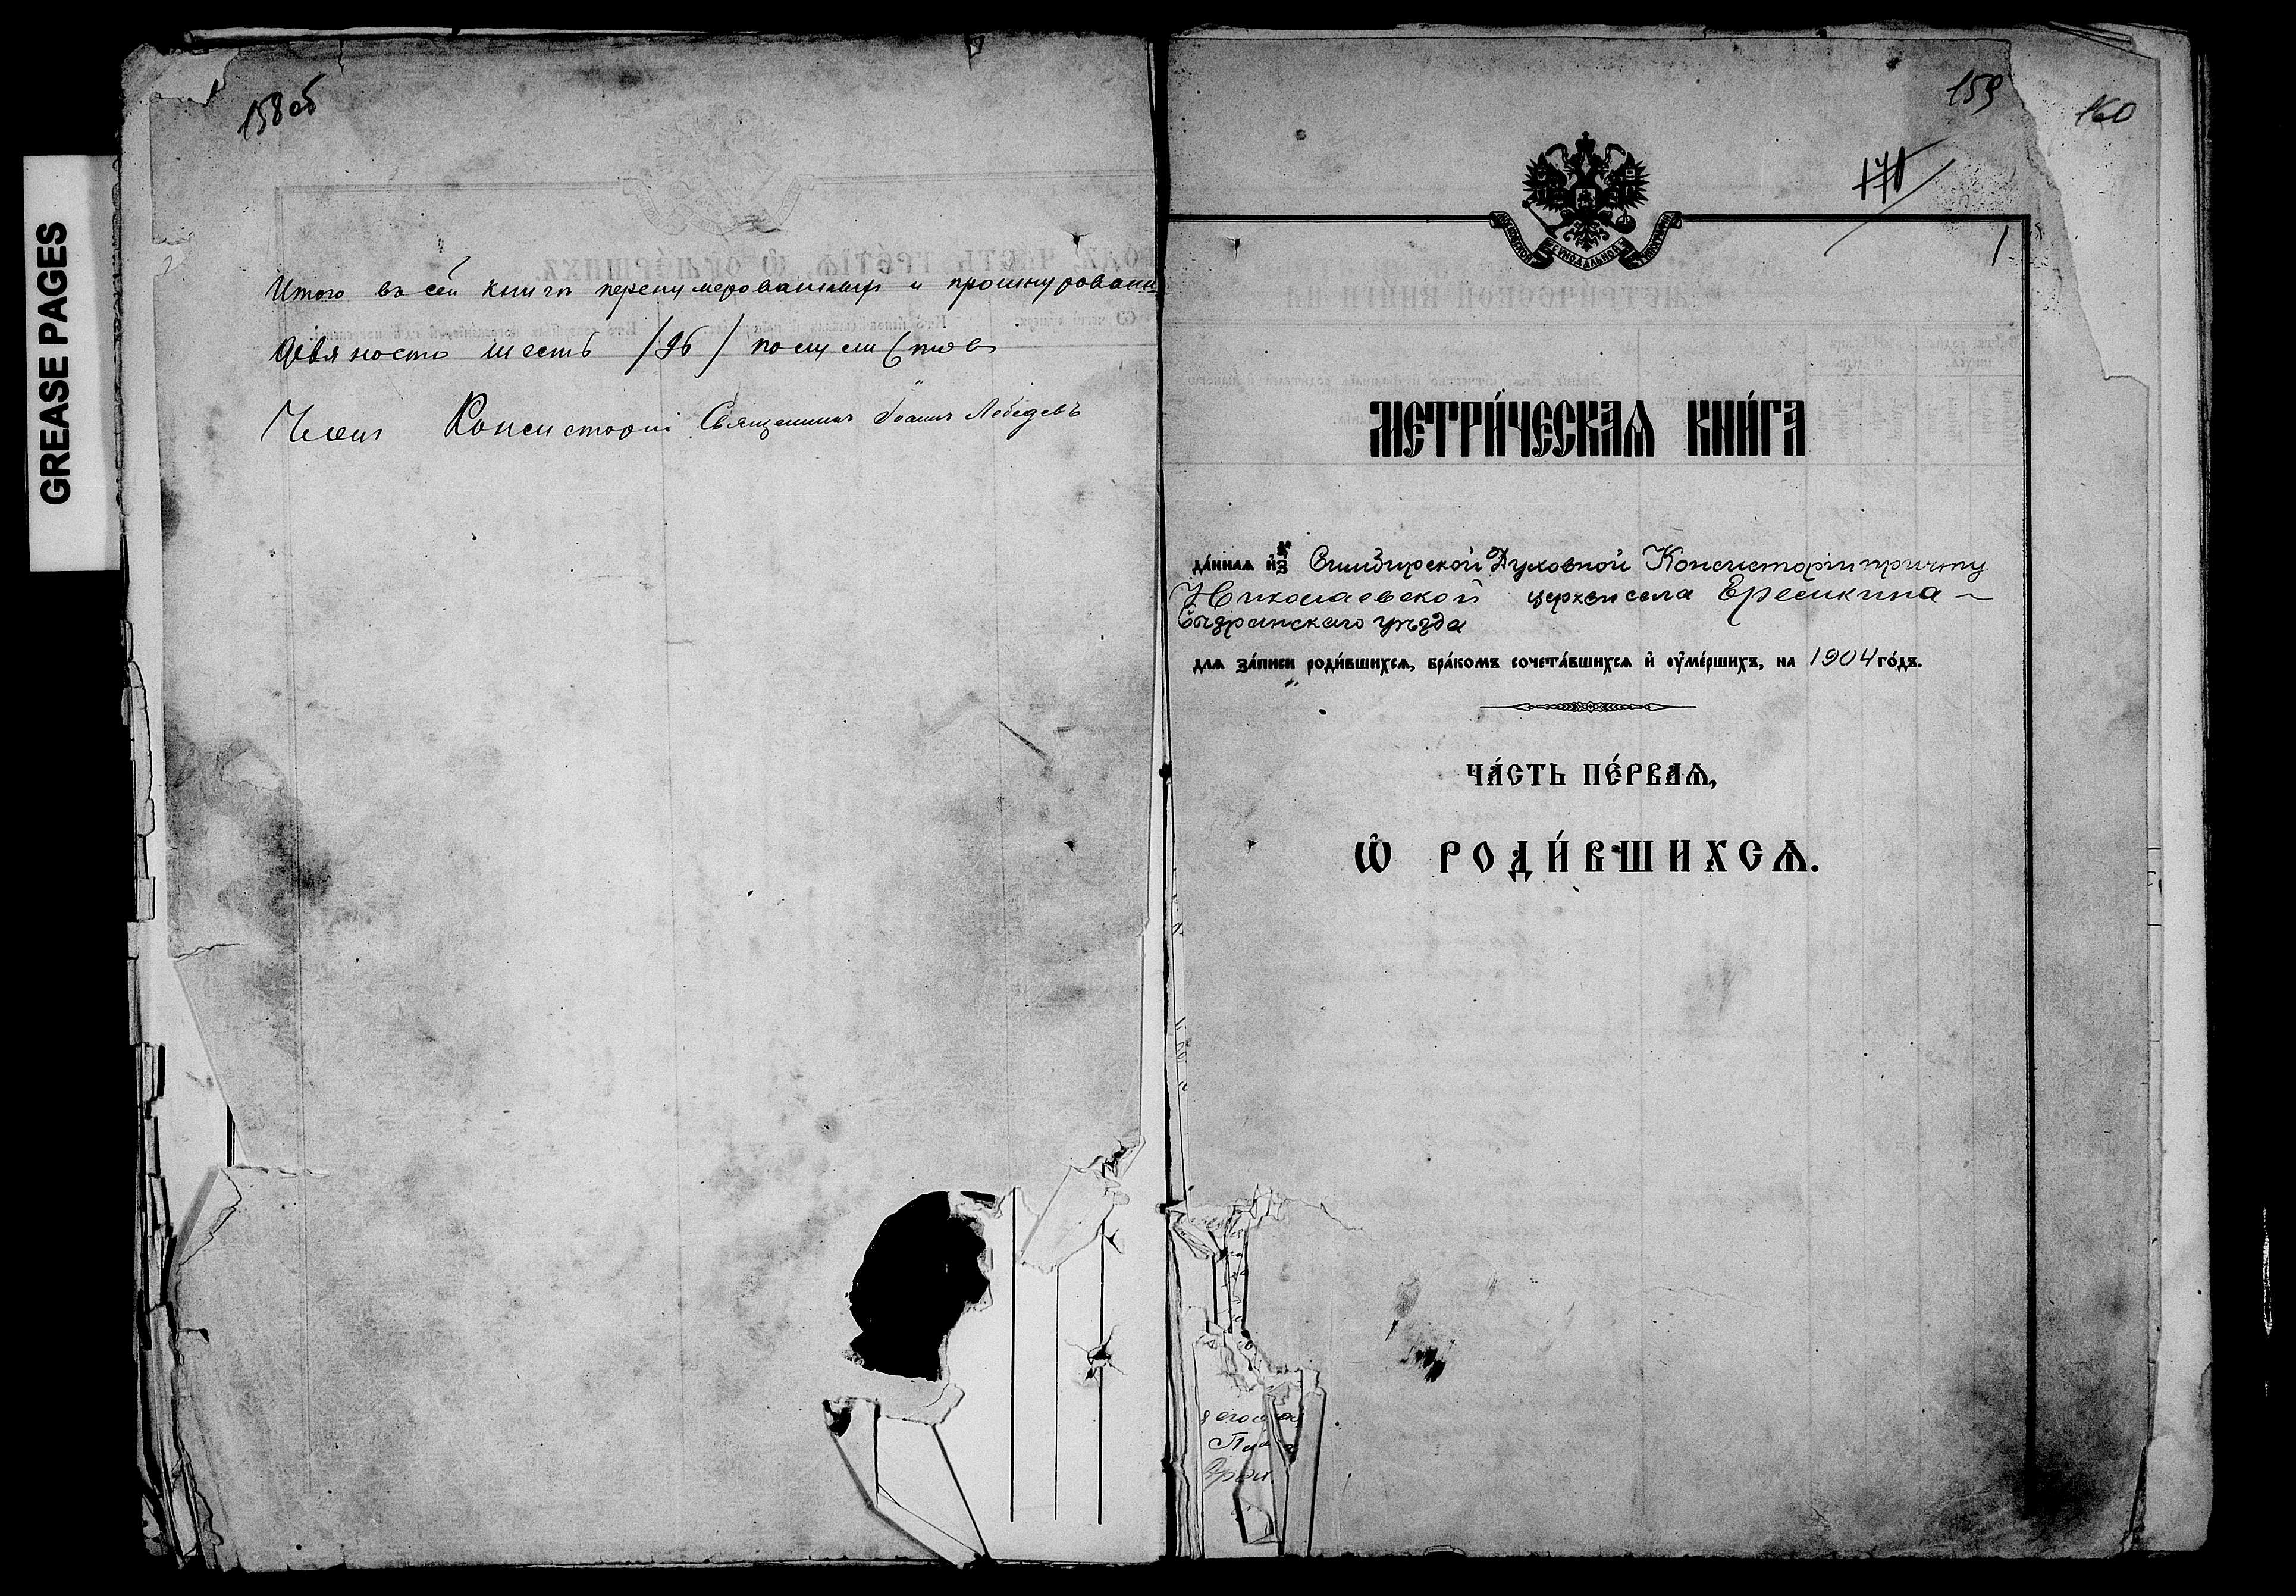 GREASE PAGES
158об
Итого въ сей книгѣ перенумерованныхъ и прошнурованн
девяносто шесть /96/ полулистовъ
Членъ Консисторіи Священникъ Іоаннъ Лебедевъ
159
160
1
МОСКОВСКОЙ СѴНОДАЛЬНОЙ ТИПОГРАФІИ
МЕТРИ́ЧЕСКАѦ КНИ́ГА
да́ннаѧ и҆з̾ Симбирской Духовной Консисторіи причту
Николаевской церкви села Ереміина
Сызранскаго уѣзда
длѧ за́писи роди́вшихсѧ, бра́комъ сочета́вшихсѧ и҆ ᲂу҆ме́ршихъ, на 1904 го́дъ.
ЧА́СТЬ ПЕ́РВАѦ,
Ѽ РОДИ́ВШИХСѦ.